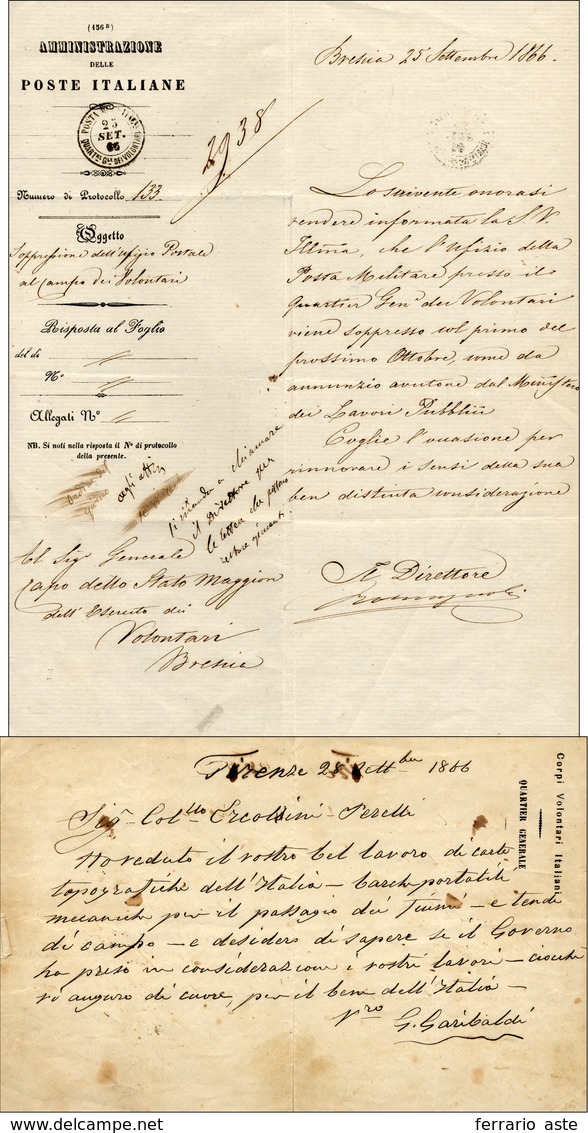 (136 B)
AMMINISTRAZIONE
DELLE
POSTE ITALIANE
25
SET.
66
QUART. GLE DEI VOLONTARI
Numero di Protocollo 133
Oggetto
Soppressione dell'Ufizio Postale
al Campo dei Volontari
Risposta al Foglio
del dì
N.º
Allegati N.º
NB. Si noti nella risposta il Nº di protocollo
della presente.
2938
agli atti
si manda a chiamare
il Direttore per
le lettere che possono
Al Sigr Generale
Capo dello Stato Maggiore
dell'Esercito dei
Volontari
Brescia
Brescia 25 Settembre 1866.
Lo scrivente onorasi
rendere informata la S.V.
Illma, che l'Ufizio della
Posta Militare presso il
Quartier Genle dei Volontari
viene soppresso col primo del
prossimo Ottobre, come da
annunzio avutone dal Ministero
dei Lavori Pubblici
Coglie l'occasione per
rinnovare i sensi della sua
ben distinta considerazione
Il Direttore
Corpi Volontari Italiani
QUARTIER GENERALE
Firenze 28 Settbre 1866
Sigr Collo Ercolini Perelli
Ho veduto il vostro bel lavoro di carte
topografiche dell'Italia – barche portatili
mecaniche per il passagio dei fiumi – e tende
di campo – e desidero di sapere se il Governo
ha preso in considerazione i vostri lavori – ciocchè
vi auguro di cuore, per il bene dell'Italia –
Vro
G. Garibaldi
ferrario aste